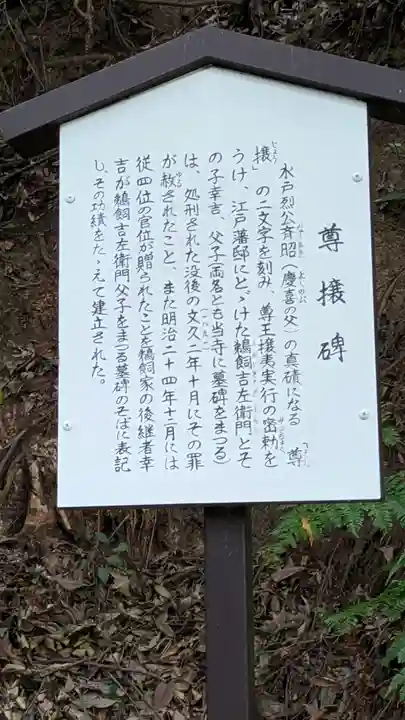 尊攘碑
水戸烈公斉昭(慶喜の父)の真磧になる「尊
攘」の二文字を刻み、尊王攘夷実行の密勅を
うけ、江戸藩邸にとゞけた鵜飼吉左衛門とそ
の子幸吉、父子両名とも当寺に墓碑をまつる)
は、処刑された没後の文久二年十月にその罪
が赦されたこと、また明治二十四年十二月には
従四位の官位が贈られたことを鵜飼家の後継者幸
吉が鵜飼吉左衛門父子をまつる墓碑のそばに表記
し、その功績をたゝえて建立された。